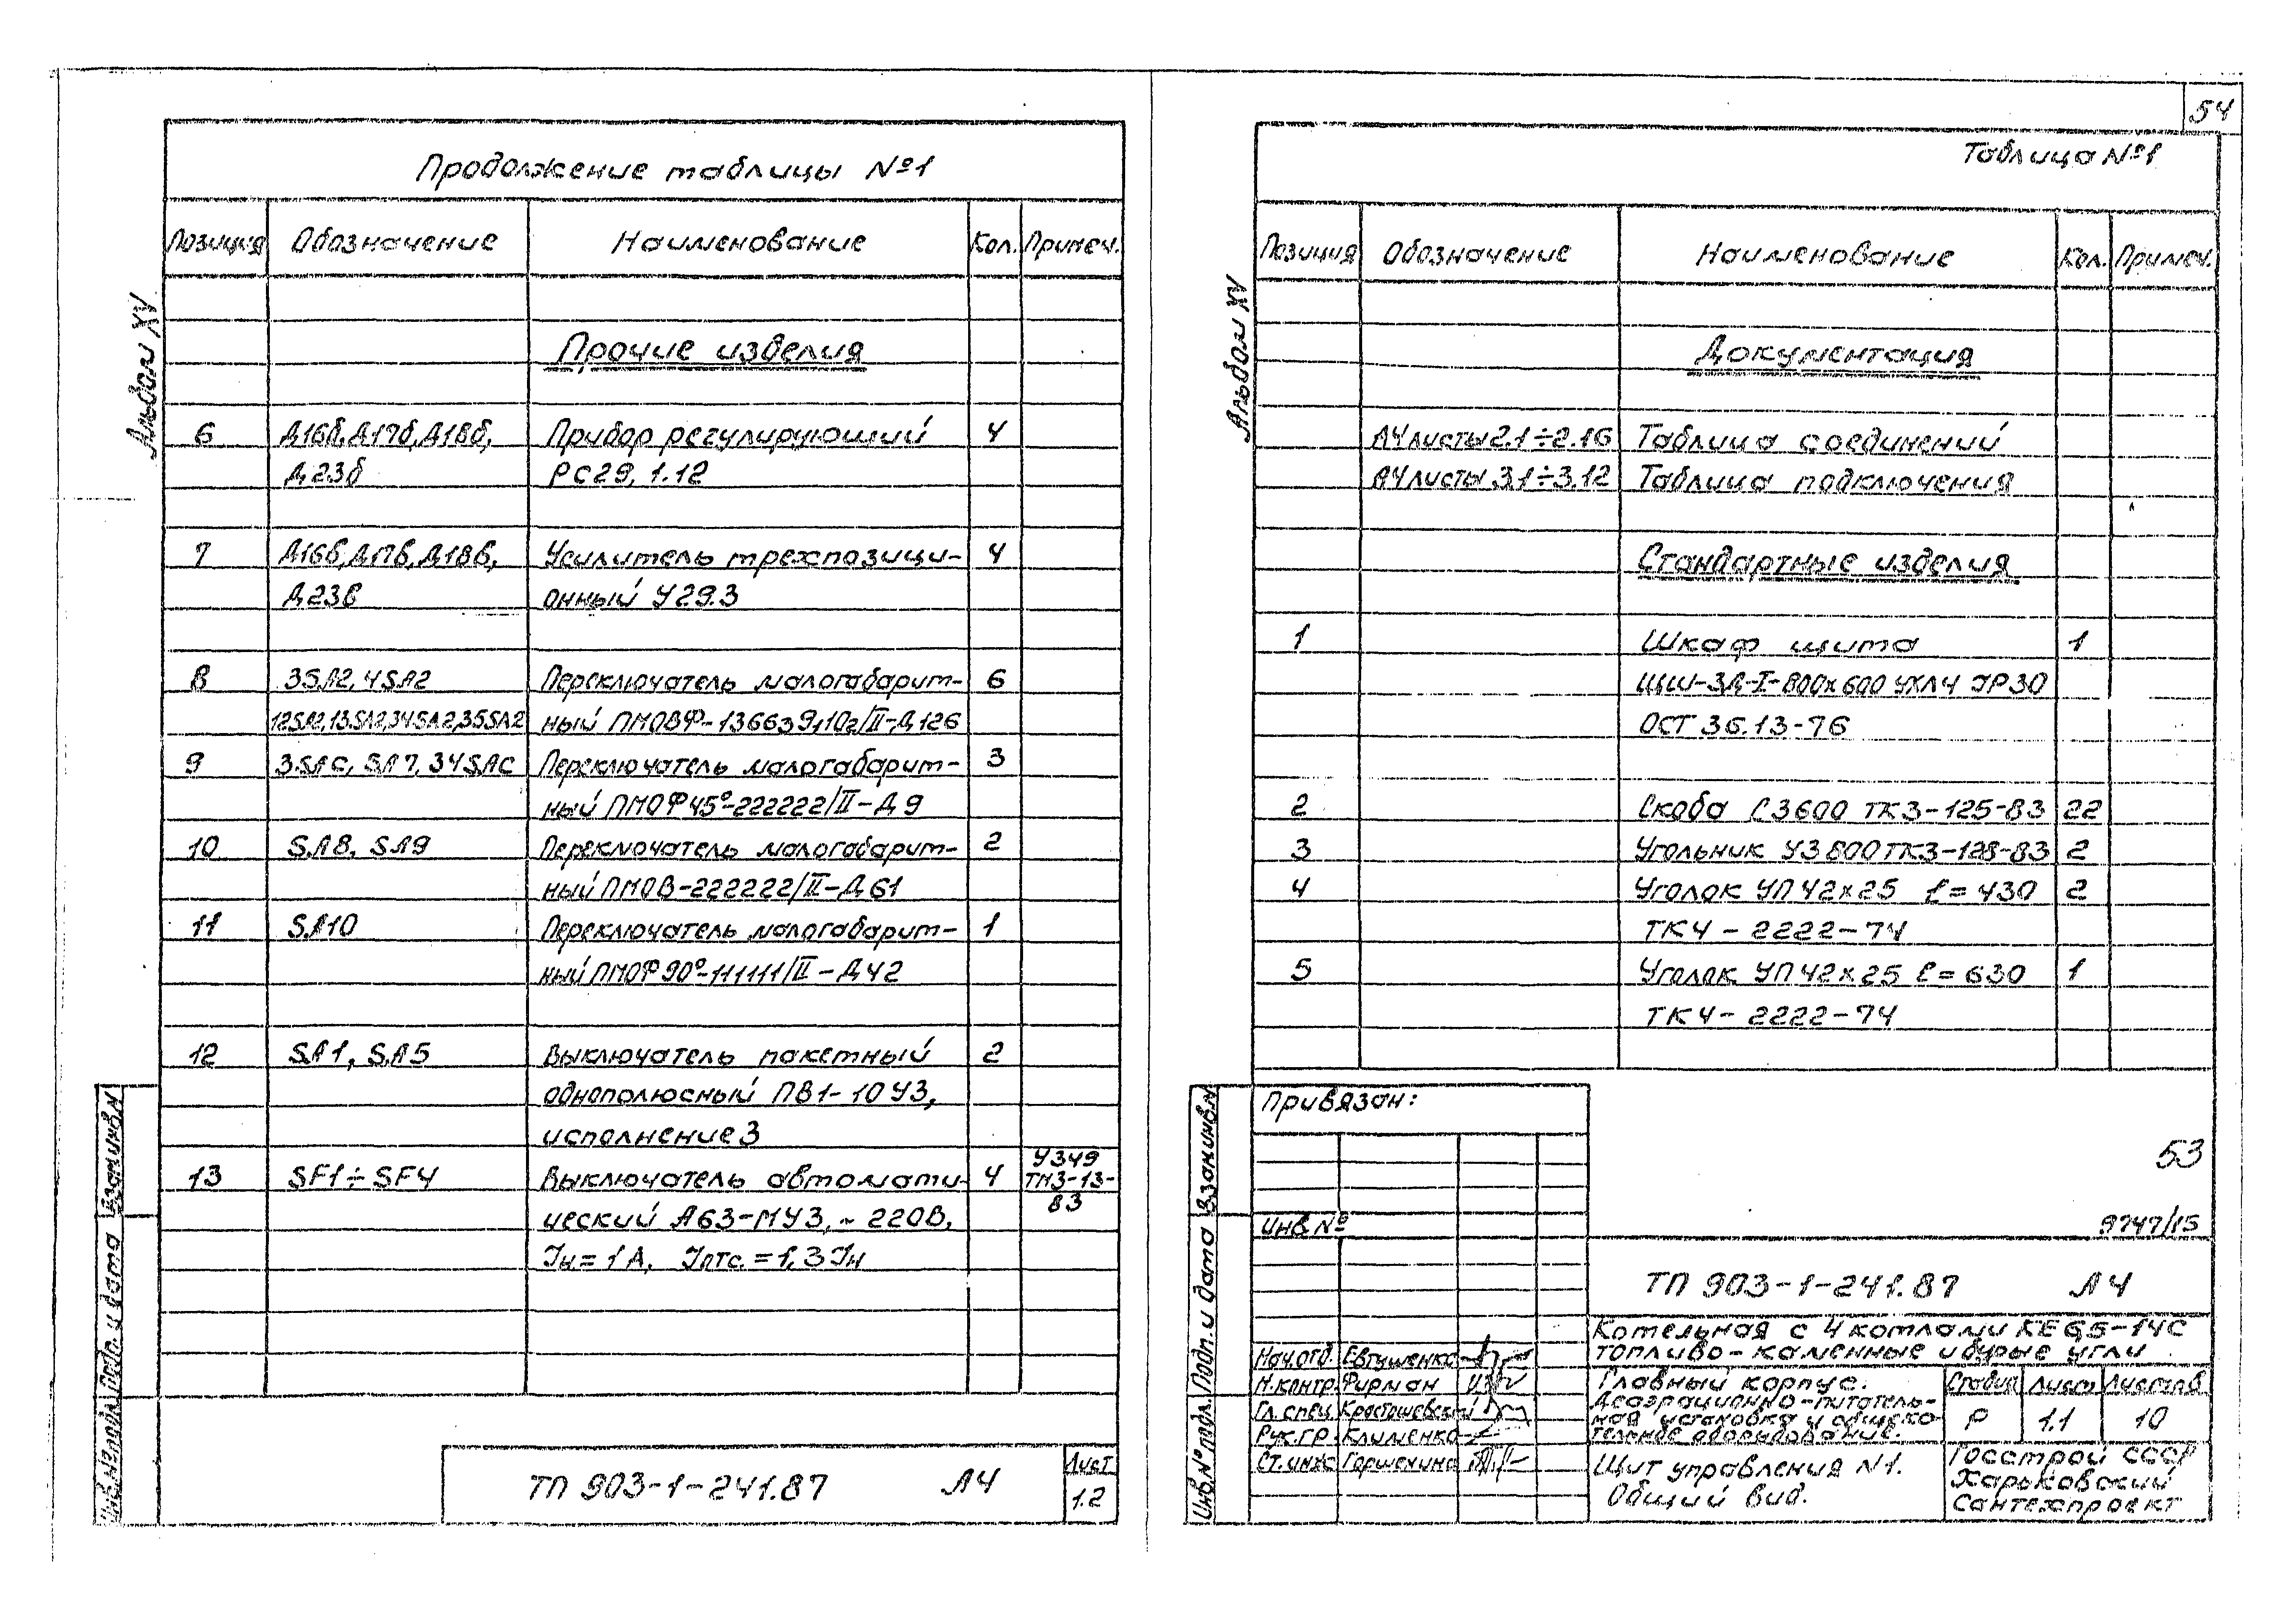 54
Продолжение таблицы №1
Позиция Обозначение Наименование Кол. Примеч.
Прочие изделия
6 Д16б, Д17б, Д18б, Прибор регулирующий 4
Д23б РС29, 1.12
7 Д16в, Д17в, Д18в, Усилитель трехпозици- 4
Д23в онный У29.3
8 3SA2, 4SA2 Переключатель малогабарит- 6
12SA2, 13SA2, 34SA2, 35SA2 ный ПМОВФ-136639,10г/II-Д126
9 3SAC, SA7, 34SAC Переключатель малогабарит- 3
ный ПМОФ45°-222222/II-Д9
10 SA8, SA9 Переключатель малогабарит- 2
ный ПМОВ-222222/II-Д61
11 SA10 Переключатель малогабарит- 1
ный ПМОФ90°-111111/II-Д42
12 SA1, SA5 Выключатель пакетный 2
однополюсный ПВ1-10У3,
исполнение 3
13 SF1÷SF4 Выключатель автомати- 4 У349
ТМ3-13-
83
ческий А63-МУ3, ~220В,
Iн=1А, Iотс.=1,3Iн
Альбом XV
Взам.инв.№
Подп. и дата
Инв.№подл.
ТП 903-1-241.87 А4
Лист
1.2
Таблица №1
Позиция Обозначение Наименование Кол. Примеч.
Документация
А4 листы 2.1÷2.16 Таблица соединений
А4 листы 3.1÷3.12 Таблица подключения
Стандартные изделия
1 Шкаф щита 1
ЩШ-ЗД-I-800х600 УХЛ4 IP30
ОСТ 36.13-76
2 Скоба С3600 ТК3-125-83 22
3 Угольник У3800 ТК3-128-83 2
4 Уголок УП 42х25 ℓ=430 2
ТК4-2222-74
5 Уголок УП 42х25 ℓ=630 1
ТК4-2222-74
Альбом XV
Взам.инв.№
Подп. и дата
Инв.№подл.
Привязан:
53
Инв.№
9747/15
ТП 903-1-241.87 А4
Котельная с 4 котлами КЕ 6,5-14С
топливо-каменные и бурые угли
Нач.отд. Евтушенко
Н.контр. Фирман
Гл.спец.
Рук.гр. Клименко
Ст.инж.
Главный корпус.
Деаэрационно-питатель-
ная установка и общеко-
тельное оборудование.
Стадия Лист Листов
Р 1.1 10
Щит управления №1.
Общий вид.
Госстрой СССР
Харьковский
Сантехпроект